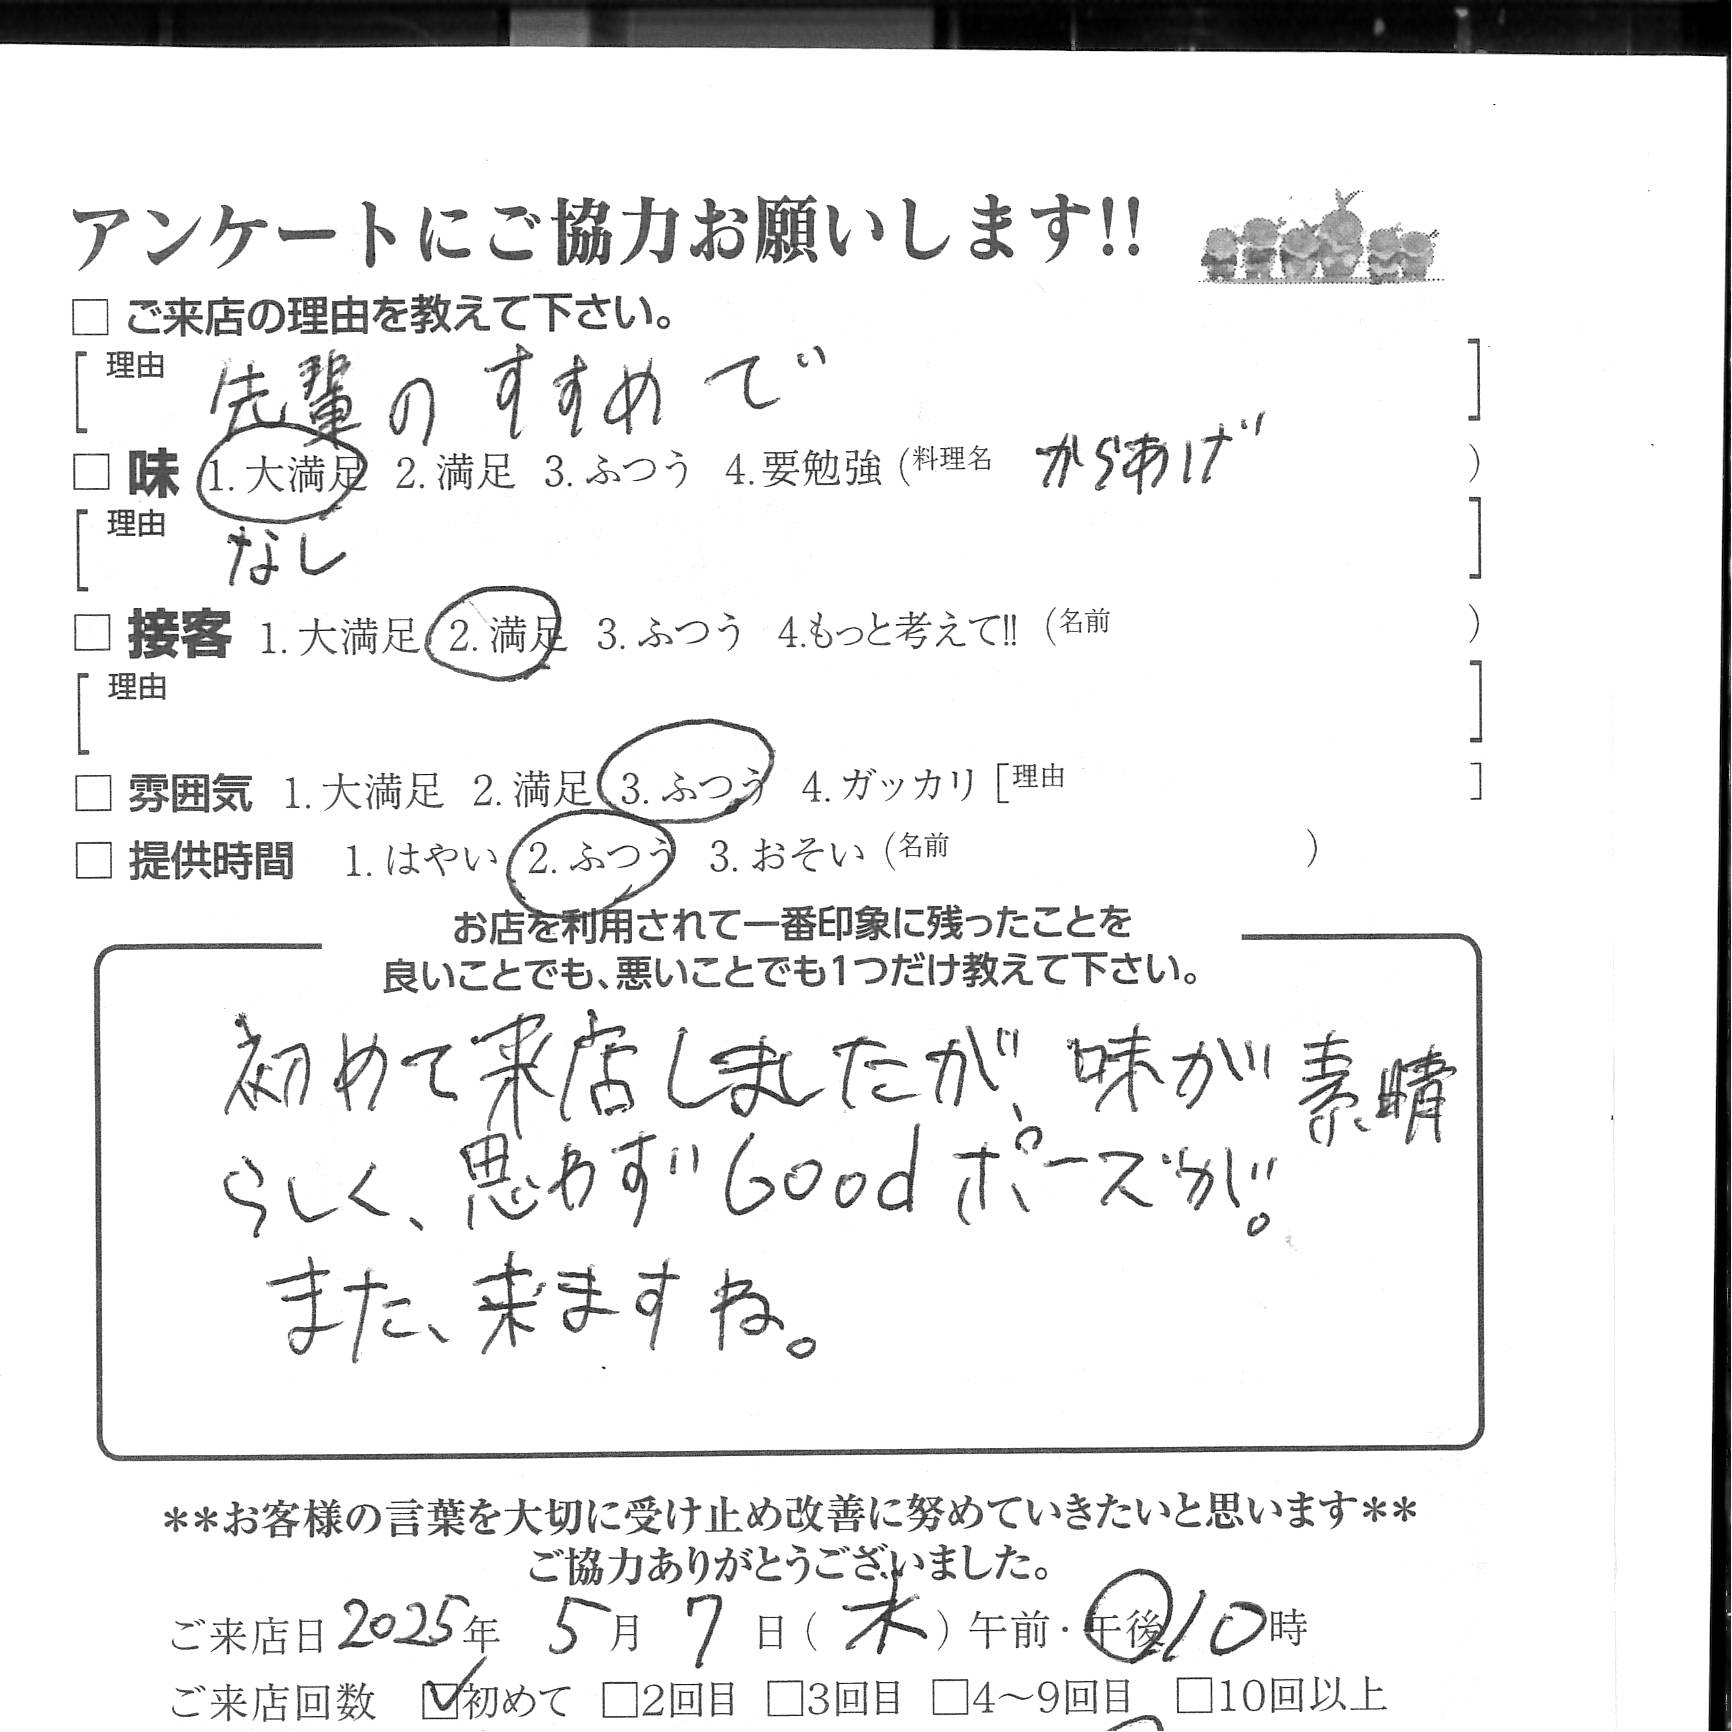 アンケートにご協力お願いします!!
□ ご来店の理由を教えて下さい。
[理由 先輩のすすめで ]
□ 味 1.大満足 2.満足 3.ふつう 4.要勉強 (料理名 からあげ )
[理由 なし ]
□ 接客 1.大満足 2.満足 3.ふつう 4.もっと考えて!! (名前 )
[理由 ]
□ 雰囲気 1.大満足 2.満足 3.ふつう 4.ガッカリ [理由 ]
□ 提供時間 1.はやい 2.ふつう 3.おそい (名前 )
お店を利用されて一番印象に残ったことを
良いことでも、悪いことでも1つだけ教えて下さい。
初めて来店しましたが、味が素晴
らしく、思わずGoodポーズが。
また、来ますね。
**お客様の言葉を大切に受け止め改善に努めていきたいと思います**
ご協力ありがとうございました。
ご来店日 2025年 5月 7日(木) 午前・午後 10時
ご来店回数 ☑初めて □2回目 □3回目 □4〜9回目 □10回以上